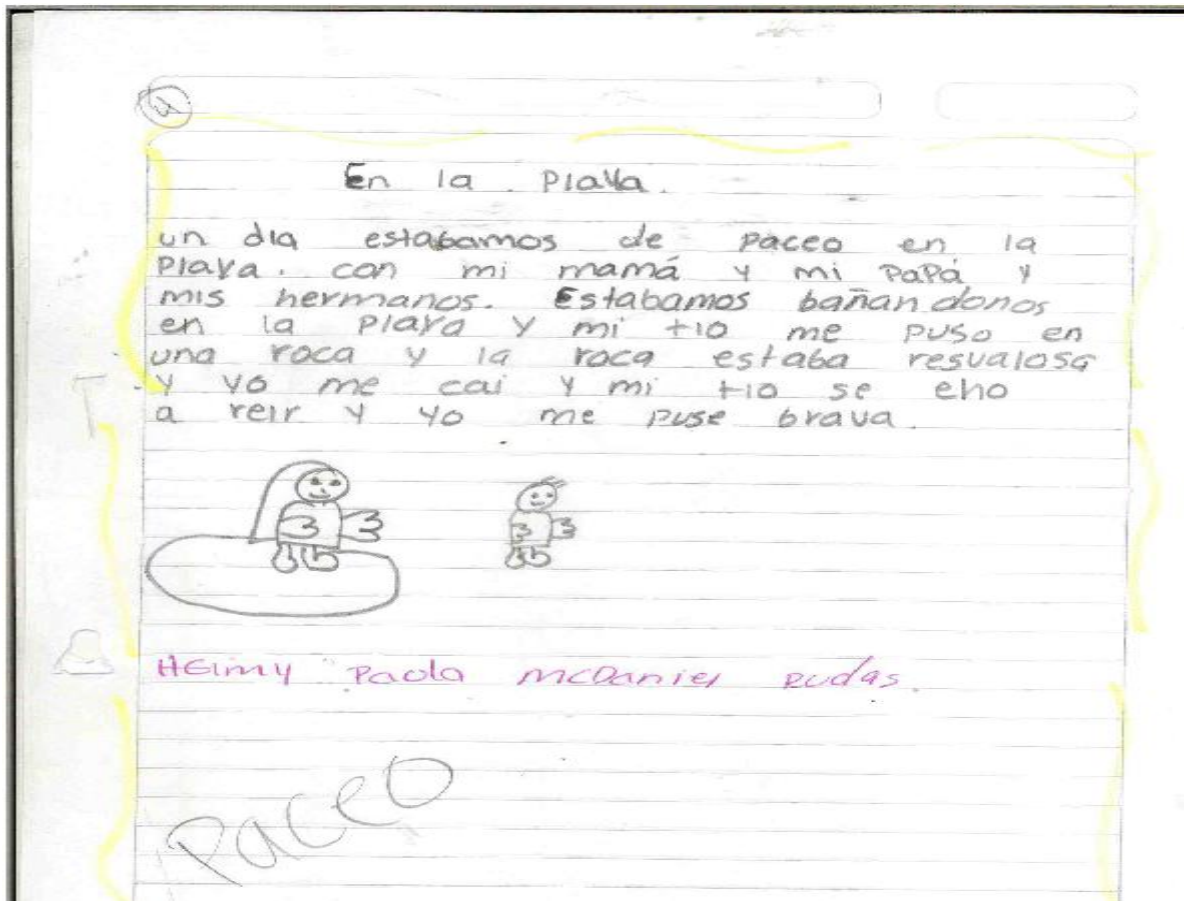 En la Playa.
un dia estabamos de paceo en la
Playa. con mi mamá y mi PaPá y
mis hermanos. Estabamos bañandonos
en la playa y mi tio me puso en
una roca y la roca estaba resvalosa
y yo me cai y mi tio se eho
a reir y yo me puse brava.
HEimy Paola mcDaniel Rudas.
Paceo